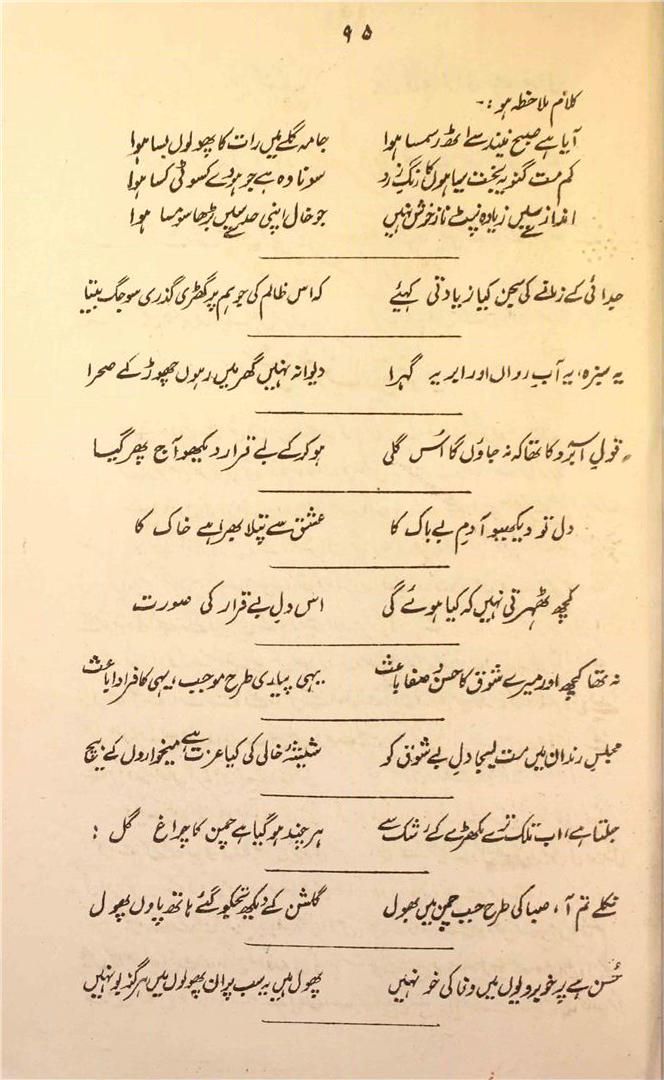 ۹۵
کلام ملاحظہ ہو:۔
آیا ہے صبح نیند سے اٹھ رسمسا ہوا جامہ گلے میں رات کا پھولوں بسا ہوا
کم مت گنو یہ بخت سیاہوں کا رنگ زرد سونا وہ ہے جو ہووے کسوٹی کسا ہوا
انداز سیں زیادہ نپٹ ناز خوش نہیں جو خال اپنی حد سیں بڑھا سو مسا ہوا
جدائی کے زمانے کی سجن کیا زیادتی کہیے کہ اس ظالم کی جو ہم پر گھڑی گذری سو جگ بیتا
یہ سبزہ، یہ آبِ رواں اور ابر یہ گہرا دیوانہ نہیں گھر میں رہوں چھوڑ کے صحرا
قولِ آبرو کا تھا کہ نہ جاؤں گا اُس گلی ہو کر کے بے قرار دیکھو آج پھر گیا
دل تو دیکھیو آدمِ بے باک کا عشق سے پتلا بھرا ہے خاک کا
کچھ ٹھہرتی نہیں کہ کیا ہوئے گی اس دلِ بے قرار کی صورت
نہ تھا کچھ اور میرے شوق کا حسنِ صفا باعث یہی پیاری طرح موجب، یہی کافر ادا باعث
مجلسِ رنداں میں مت لیجا دلِ بے شوق کو شیشۂ خالی کی کیا عزت ہے میخواروں کے بیچ
جلتا ہے، اب تلک ترے مکھڑے کے رشک سے ہر چند ہو گیا ہے چمن کا چراغ گل :
نکلے تم آ، صبا کی طرح جب چمن میں پھول گلشن کے دیکھ تجکو گئے ہاتھ پاوں پھول
حُسن ہے پر خوبرویوں میں وفا کی خو نہیں پھول ہیں یہ سب پر ان پھولوں میں ہرگز بو نہیں